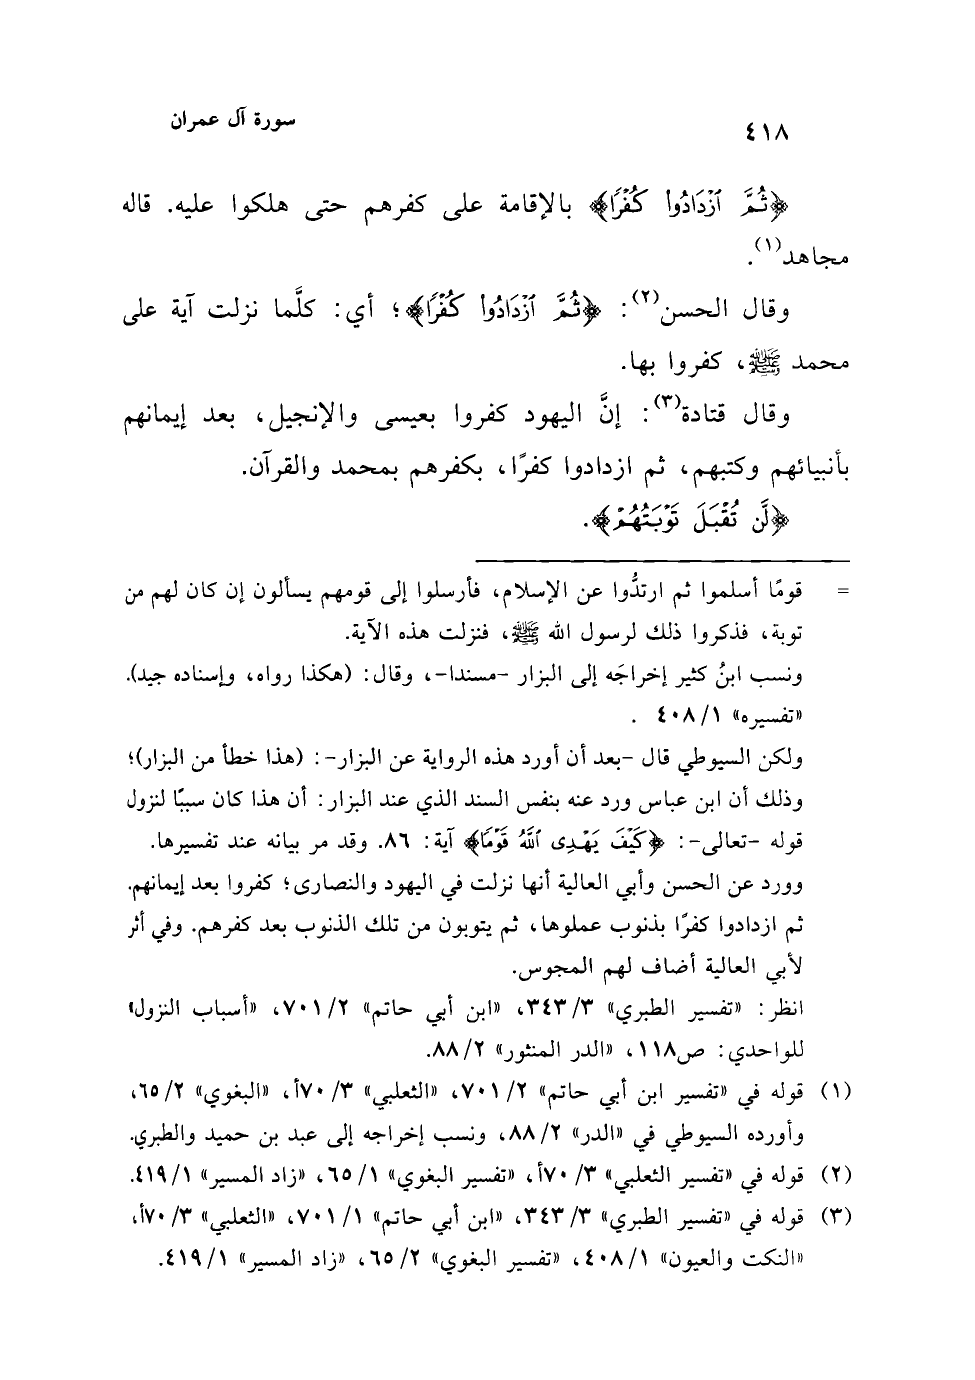 ٤١٨
سورة آل عمران
﴿ثُمَّ ٱزۡدَادُواْ كُفۡرٗا﴾ بالإقامة على كفرهم حتى هلكوا عليه. قاله
مجاهد(١).
وقال الحسن(٢): ﴿ثُمَّ ٱزۡدَادُواْ كُفۡرٗا﴾؛ أي: كلَّما نزلت آية على
محمد ﷺ، كفروا بها.
وقال قتادة(٣): إنَّ اليهود كفروا بعيسى والإنجيل، بعد إيمانهم
بأنبيائهم وكتبهم، ثم ازدادوا كفرًا، بكفرهم بمحمد والقرآن.
﴿لَّن تُقۡبَلَ تَوۡبَتُهُمۡ﴾.
= قومًا أسلموا ثم ارتدُّوا عن الإسلام، فأرسلوا إلى قومهم يسألون إن كان لهم من
توبة، فذكروا ذلك لرسول الله ﷺ، فنزلت هذه الآية.
ونسب ابنُ كثير إخراجَه إلى البزار -مسندا-، وقال: (هكذا رواه، وإسناده جيد).
«تفسيره» ٤٠٨/١ .
ولكن السيوطي قال -بعد أن أورد هذه الرواية عن البزار-: (هذا خطأ من البزار)؛
وذلك أن ابن عباس ورد عنه بنفس السند الذي عند البزار: أن هذا كان سببًا لنزول
قوله -تعالى-: ﴿كَيۡفَ يَهۡدِى ٱللَّهُ قَوۡمٗا﴾ آية: ٨٦. وقد مر بيانه عند تفسيرها.
وورد عن الحسن وأبي العالية أنها نزلت في اليهود والنصارى؛ كفروا بعد إيمانهم.
ثم ازدادوا كفرًا بذنوب عملوها، ثم يتوبون من تلك الذنوب بعد كفرهم. وفي أثر
لأبي العالية أضاف لهم المجوس.
انظر: «تفسير الطبري» ٣٤٣/٣، «ابن أبي حاتم» ٧٠١/٢، «أسباب النزول»
للواحدي: ص١١٨، «الدر المنثور» ٨٨/٢.
(١) قوله في «تفسير ابن أبي حاتم» ٧٠١/٢، «الثعلبي» ٧٠/٣أ، «البغوي» ٦٥/٢،
وأورده السيوطي في «الدر» ٨٨/٢، ونسب إخراجه إلى عبد بن حميد والطبري.
(٢) قوله في «تفسير الثعلبي» ٧٠/٣أ، «تفسير البغوي» ٦٥/١، «زاد المسير» ٤١٩/١.
(٣) قوله في «تفسير الطبري» ٣٤٣/٣، «ابن أبي حاتم» ٧٠١/١، «الثعلبي» ٧٠/٣أ،
«النكت والعيون» ٤٠٨/١، «تفسير البغوي» ٦٥/٢، «زاد المسير» ٤١٩/١.